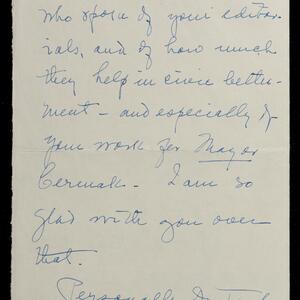 who spoke of your editor-
ials, and of how much
they help in civic better-
ment - and especially of
your work for Mayor
Cermak. I am so
glad with you over
that.
Personally I